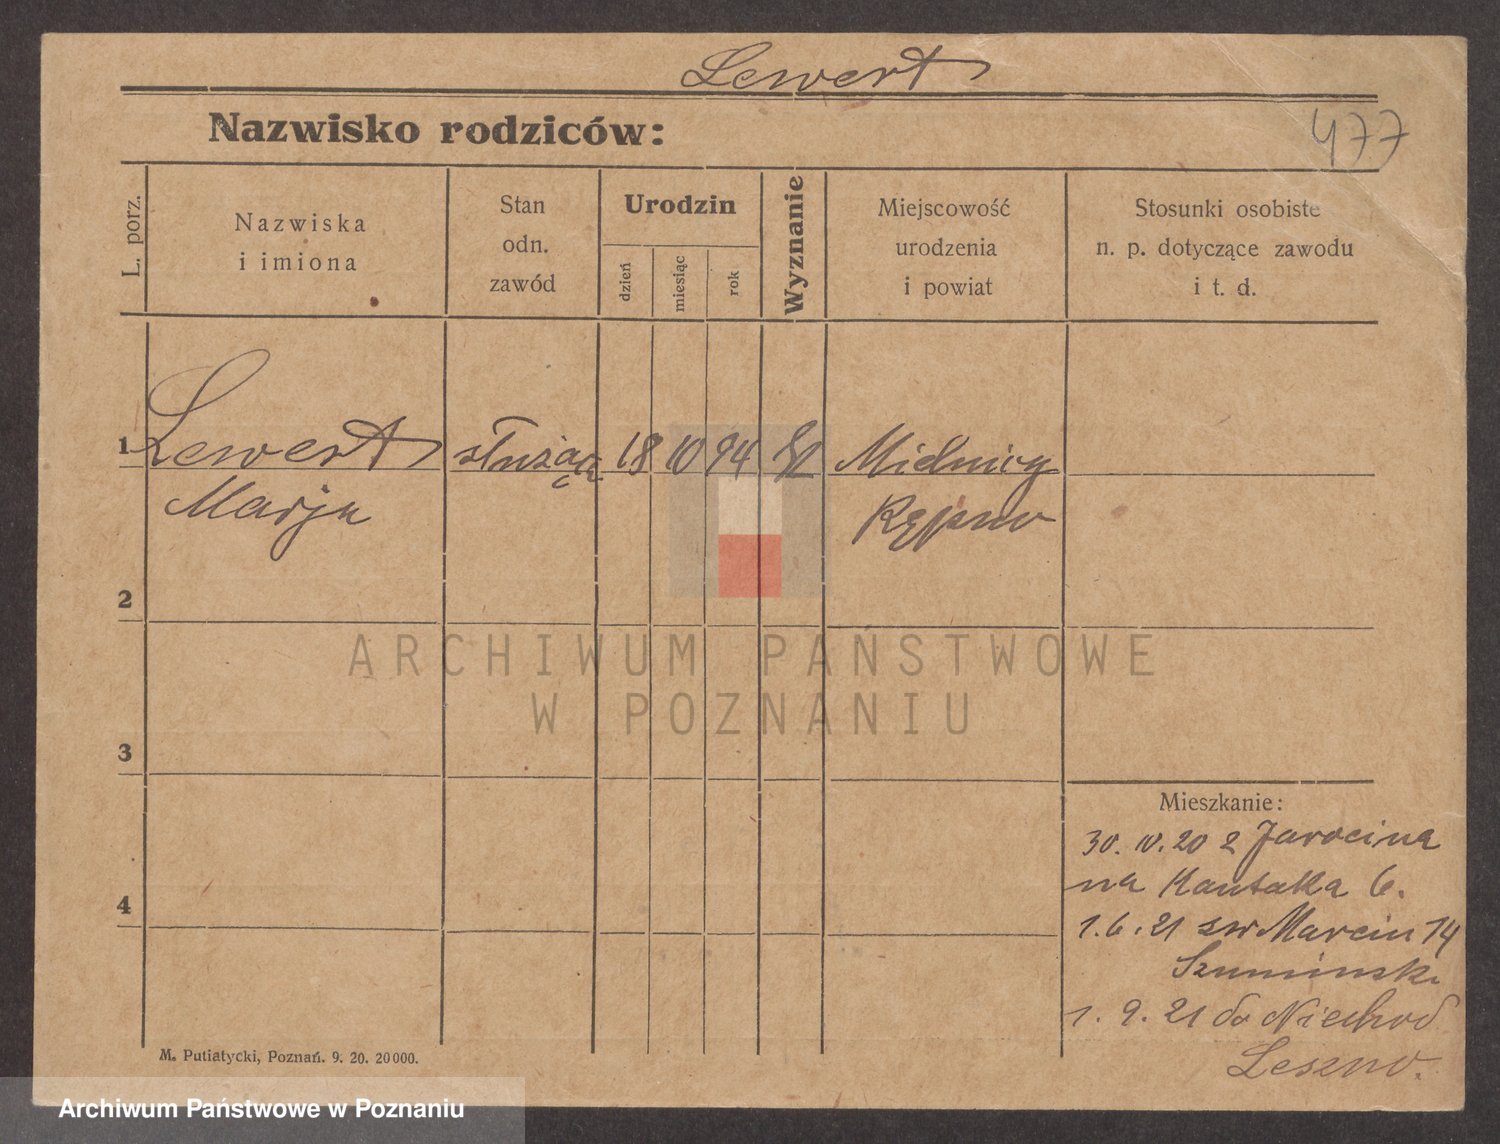 Lewert
Nazwisko rodziców:
477
L. porz.
Nazwiska
i imiona
Stan
odn.
zawód
Urodzin
dzień
miesiąc
rok
Wyznanie
Miejscowość
urodzenia
i powiat
Stosunki osobiste
n. p. dotyczące zawodu
i t. d.
1 Lewert służąca 18 10 94 Mielnicy
Marja Kępno
2
3
4
Mieszkanie:
30. IV. 20 z Jarocina
na Kantaka 6.
1.6.21 św Marcin 74
Szuminsk
1. 9. 21 do Niechod
Leszno.
M. Putiatycki, Poznań. 9. 20. 20000.
ARCHIWUM PAŃSTWOWE
W POZNANIU
Archiwum Państwowe w Poznaniu